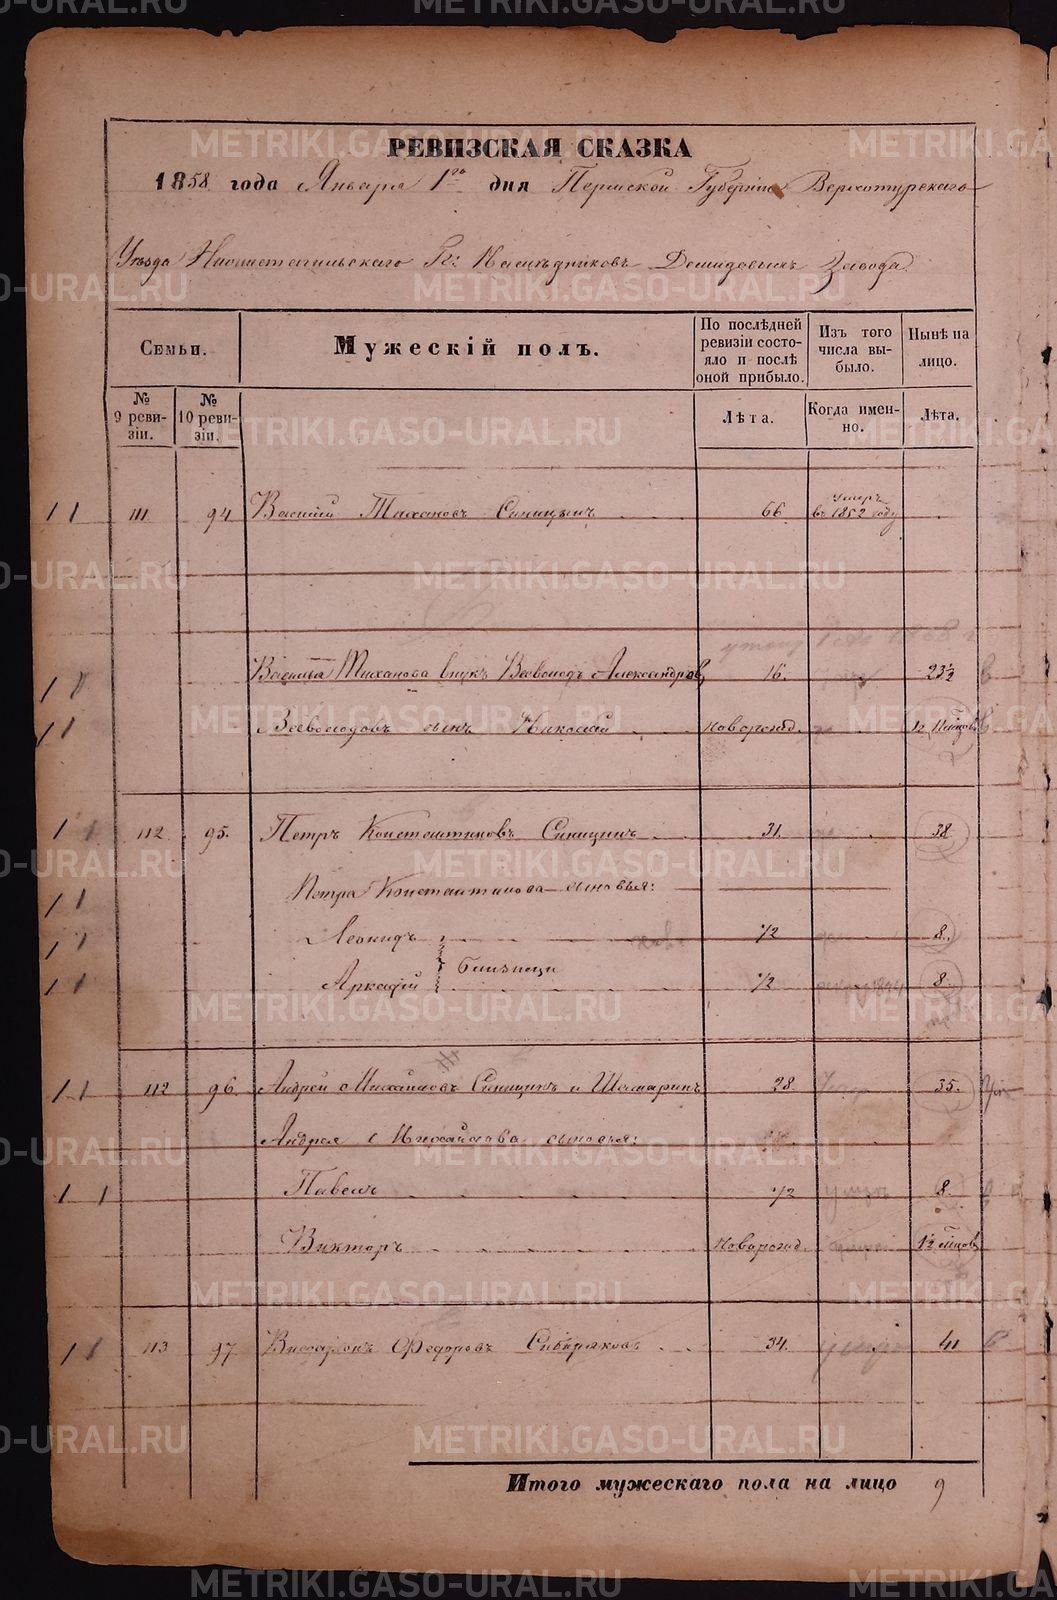 РЕВИЗСКАЯ СКАЗКА
1858 года Января 1го дня Пермской Губернии Верхотурскаго
Уѣзда Нижнетагильскаго Гг: Наслѣдниковъ Демидовыхъ Завода.
Семьи.
Мужескій полъ.
По послѣдней ревизіи состояло и послѣ оной прибыло.
Изъ того числа выбыло.
Нынѣ на лицо.
№ 9 ревизіи.
№ 10 ревизіи.
Лѣта.
Когда именно.
Лѣта.
111 94 Василий Тихановъ Синицынъ 66. умеръ въ 1852 году
Василья Тиханова внукъ Всеволодъ Александровъ 16. 23½
Всеволодовъ сынъ Николай Новорожд.
112 95. Петръ Константиновъ Синицынъ 31. 38
Петра Константинова сыновья:
Леонидъ ½ 8.
Аркадій близнецы ½ 8.
112 96. Андрей Михайловъ Синицынъ и Шамаринъ 28. 35.
Андрея Михайлова сыновья:
Павелъ ½ умеръ 8.
Викторъ Новорожд. 1½ мѣсяцовъ
113 97. Федоровъ Сибиряковъ 34. умеръ 41
Итого мужескаго пола на лицо 9
METRIKI.GASO-URAL.RU